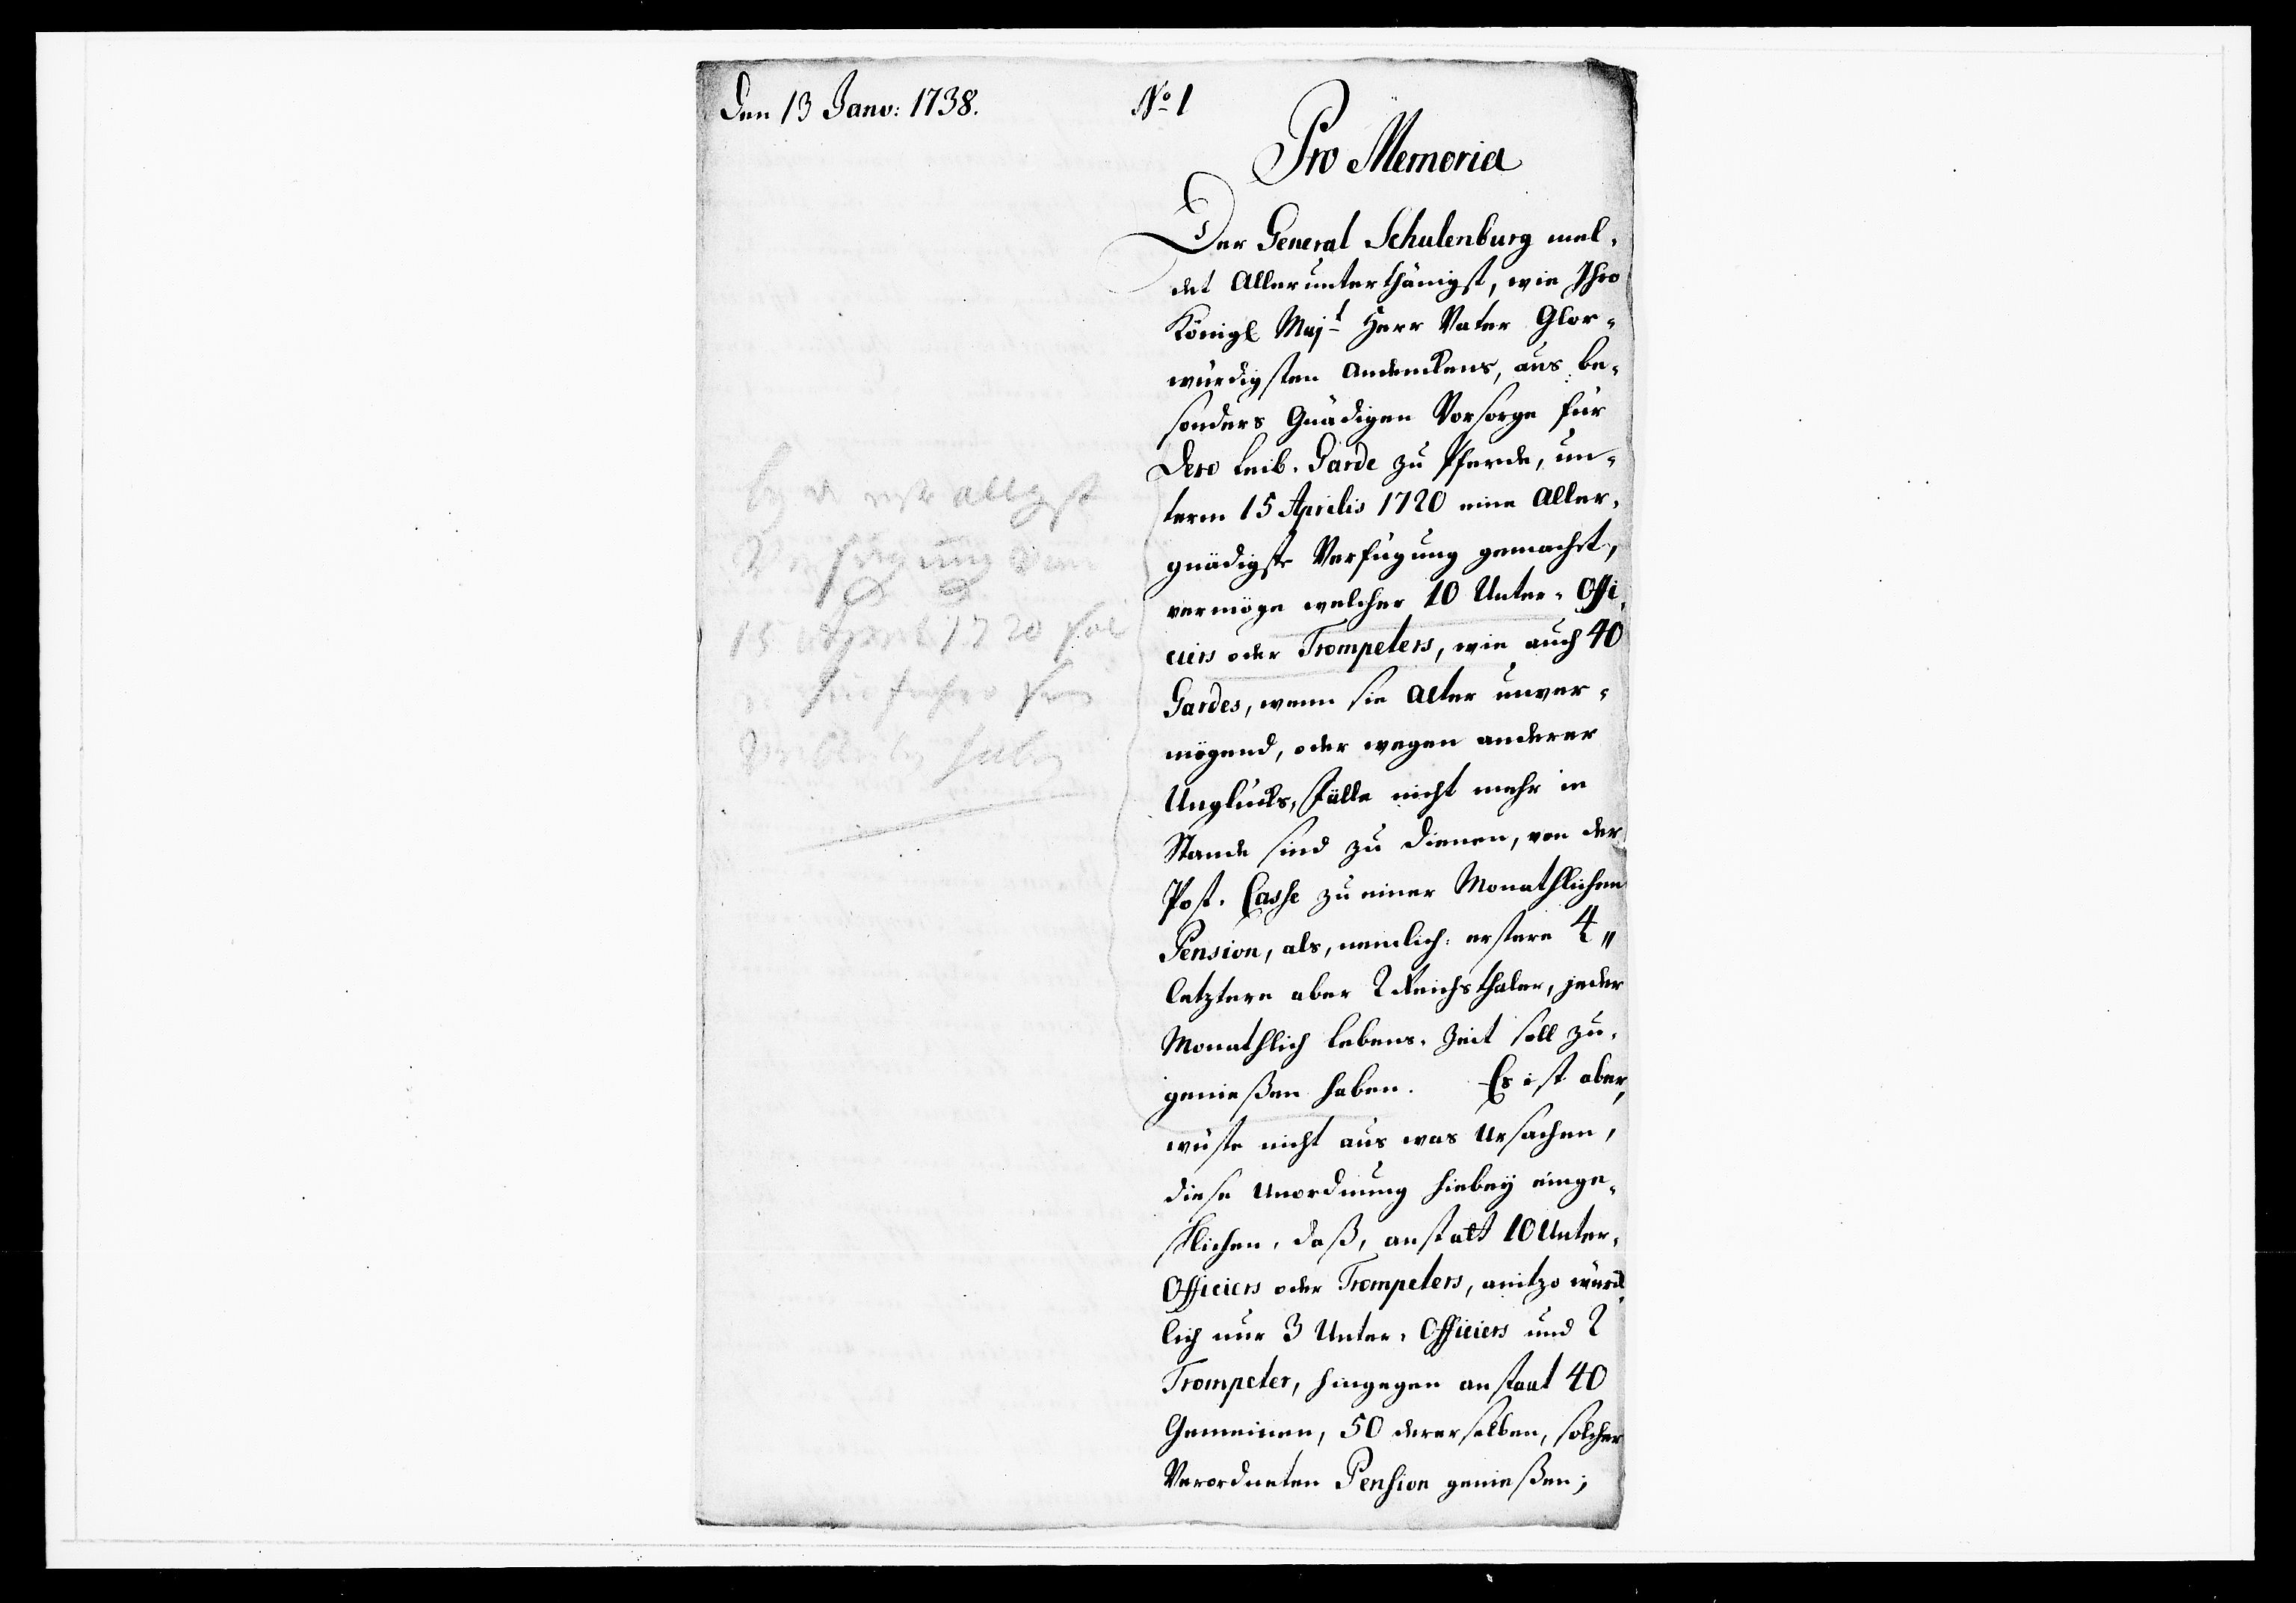 Den 13 Janv: 1738.
No 1
Pro Memoria
Der General Schulenburg mel-
det Allerunterthänigst, wie Ihro
Königl Majt Herr Vater Glor-
würdigsten Andenckens, aus be-
sonders Gnädigen Vorsorge für
Dero Leib-Garde zu Pferde, un-
term 15 Aprilis 1720 eine Aller-
gnädigste Verfügung gemacht,
vermöge welcher 10 Unter-Offi-
ciers oder Trompeters, wie auch 40
Gardes, wenn sie Alter unver-
mögend, oder wegen anderer
Unglücks-Fälle nicht mehr in
Stande sind zu dienen, von der
Post-Casse zu einer Monathlichen
Pension, als, nemlich: erstere 4 "
letztere aber 2 Reichsthaler, jeder
Monathlich Lebens-Zeit soll zu-
genießen haben. Es ist aber,
wüste nicht aus was Ursachen,
diese Unordnung hiebeÿ einge-
schlichen, daß, anstatt 10 Unter-
Officiers oder Trompeters, anitzo würck-
lich nur 3 Unter-Officiers und 2
Trompeter, hingegen anstaat 40
Gemeinen, 50 dererselben, solcher
Verordneten Pension genießen;
15 April 1720